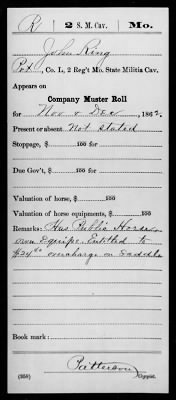 R 2 S. M. Cav. Mo.
John Ring
Pvt, Co. L, 2 Reg't Mo. State Militia Cav.
Appears on
Company Muster Roll
for Nov & Dec, 1862.
Present or absent Not stated
Stoppage, $ 100 for
Due Gov't, $ 100 for
Valuation of horse, $ 100
Valuation of horse equipments, $ 100
Remarks: Has Public Horse &
own Equipts. Entitled to
$24 overcharge on Saddle
Book mark:
Patterson
(358) Copyist.